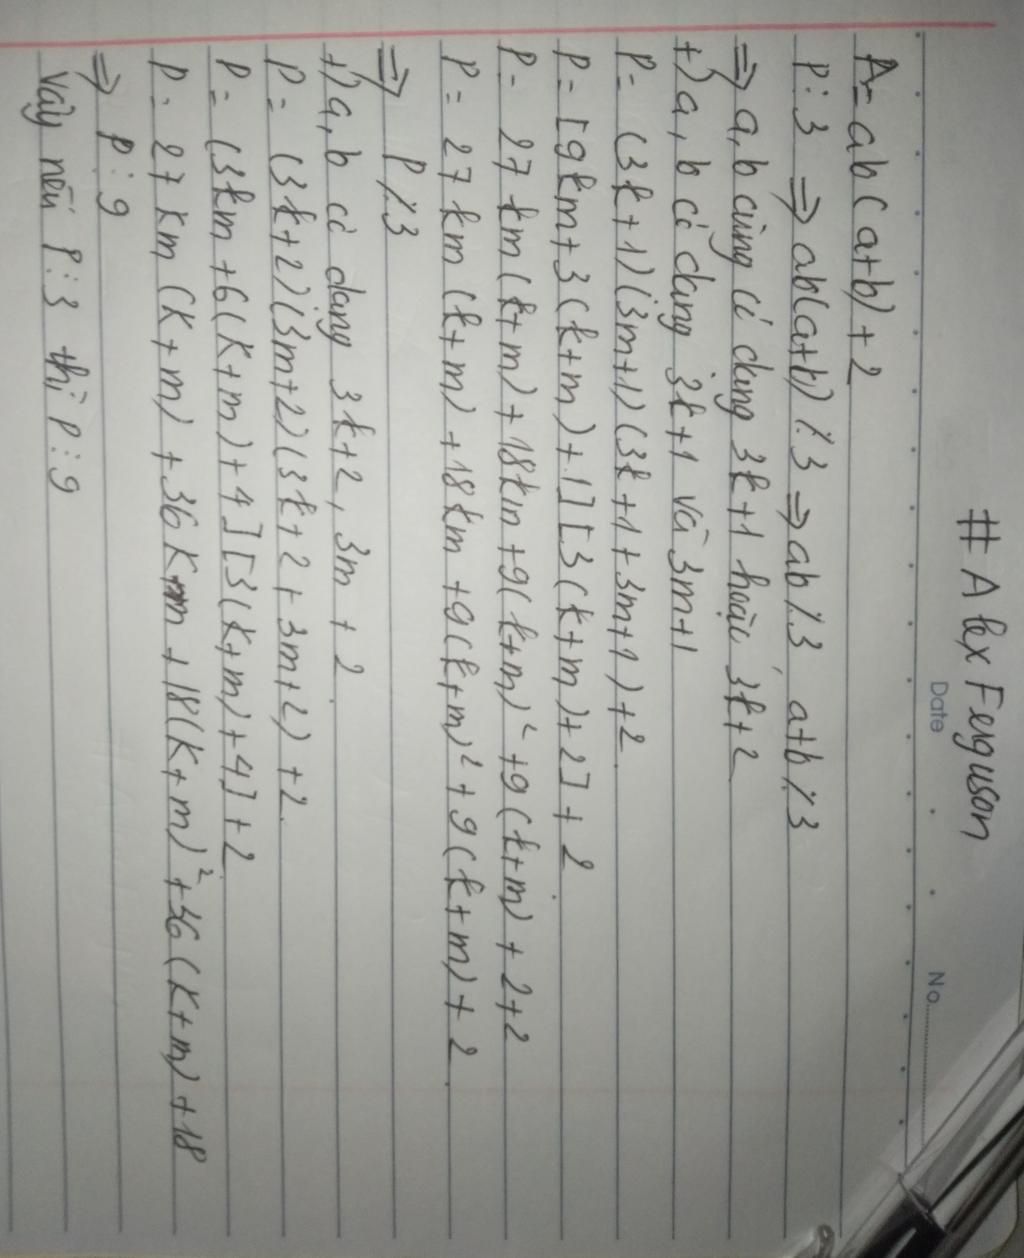 # Alex Ferguson
Date
No.
A = ab(a+b)+2
P⋮3 ⇒ ab(a+b) ⋮̸ 3 ⇒ ab ⋮̸ 3 a+b ⋮̸ 3
⇒ a,b cùng có dạng 3k+1 hoặc 3k+2
+) a, b có dạng 3k+1 và 3m+1
P = (3k+1)(3m+1)(3k+1+3m+1)+2
P = [9km+3(k+m)+1][3(k+m)+2]+2
P = 27km(k+m)+18km+9(k+m)²+9(k+m)+2+2
P = 27km(k+m)+18km+9(k+m)²+9(k+m)+2
⇒ P ⋮̸ 3
+) a, b có dạng 3k+2, 3m+2
P = (3k+2)(3m+2)(3k+2+3m+2)+2
P = (3km+6(k+m)+4][3(k+m)+4]+2
P = 27km(k+m)+36km+18(k+m)²+36(k+m)+18
⇒ P⋮9
Vậy nếu P⋮3 thì P⋮9